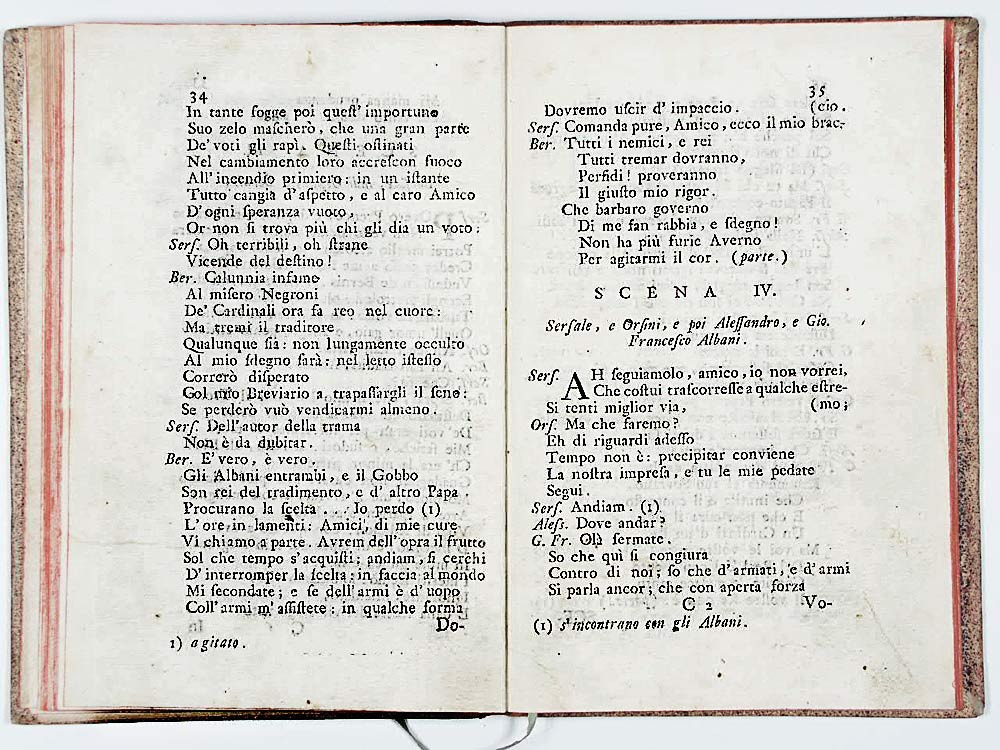 34
In tante fogge poi quest' importuno
Suo zelo mascherò, che una gran parte
De' voti gli rapì. Questi ostinati
Nel cambiamento loro accrescon fuoco
All' incendio primiero: in un istante
Tutto cangia d' aspetto, e al caro Amico
D' ogni speranza vuoto,
Or non si trova più chi gli dia un voto:
Sers. Oh terribili, oh strane
Vicende del destino!
Ber. Calunnia infame
Al misero Negroni
De' Cardinali ora fa reo nel cuore:
Ma tremi il traditore
Qualunque sia: non lungamente occulto
Al mio sdegno sarà: nel letto istesso
Correrò disperato
Col mio Breviario a trapassargli il seno:
Se perderò vuò vendicarmi almeno.
Sers. Dell' autor della trama
Non è da dubitar.
Ber. E' vero, è vero.
Gli Albani entrambi, e il Gobbo
Son rei del tradimento, e d' altro Papa.
Procurano la scelta... Io perdo (1)
L' ore in lamenti: Amici, di mie cure
Vi chiamo a parte. Avrem dell' opra il frutto
Sol che tempo s' acquisti; andiam, si cerchi
D' interromper la scelta: in faccia al mondo
Mi secondate; e se dell' armi è d' uopo
Coll' armi m' assistete: in qualche forma
Do-
1) agitato.
35
Dovremo uscir d' impaccio. (cio.
Sers. Comanda pure, Amico, ecco il mio brac-
Ber. Tutti i nemici, e rei
Tutti tremar dovranno,
Perfidi! proveranno
Il giusto mio rigor.
Che barbaro governo
Di me fan rabbia, e sdegno!
Non ha più furie Averno
Per agitarmi il cor. (parte.)
SCENA IV.
Sersale, e Orsini, e poi Alessandro, e Gio.
Francesco Albani.
Sers. AH seguiamolo, amico, io non vorrei,
Che costui trascorresse a qualche estre-
Si tenti miglior via, (mo;
Ors. Ma che faremo?
Eh di riguardi adesso
Tempo non è: precipitar conviene
La nostra impresa, e tu le mie pedate
Segui.
Sers. Andiam. (1)
Aless. Dove andar?
G. Fr. Olà fermate.
So che quì si congiura
Contro di noi; so che d' armati, e d' armi
Si parla ancor; che con aperta forza
C 2 Vo-
(1) s' incontrano con gli Albani.